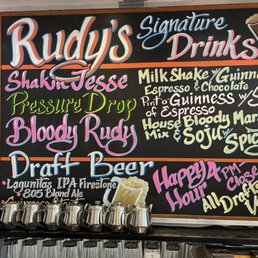 Rudy's
Signature
Drinks
Shakin Jesse
Milk Shake w/ Guinness
Espresso & Chocolate
Pressure Drop
Pint o Guinness w/ S
of Espresso
Bloody Rudy
House Bloody Mar
Mix & Soju w/
Spic
Draft Beer
Lagunitas IPA Firestone
805 Blond Ale
Happy
Hour
4 PM-Close
All Drafts